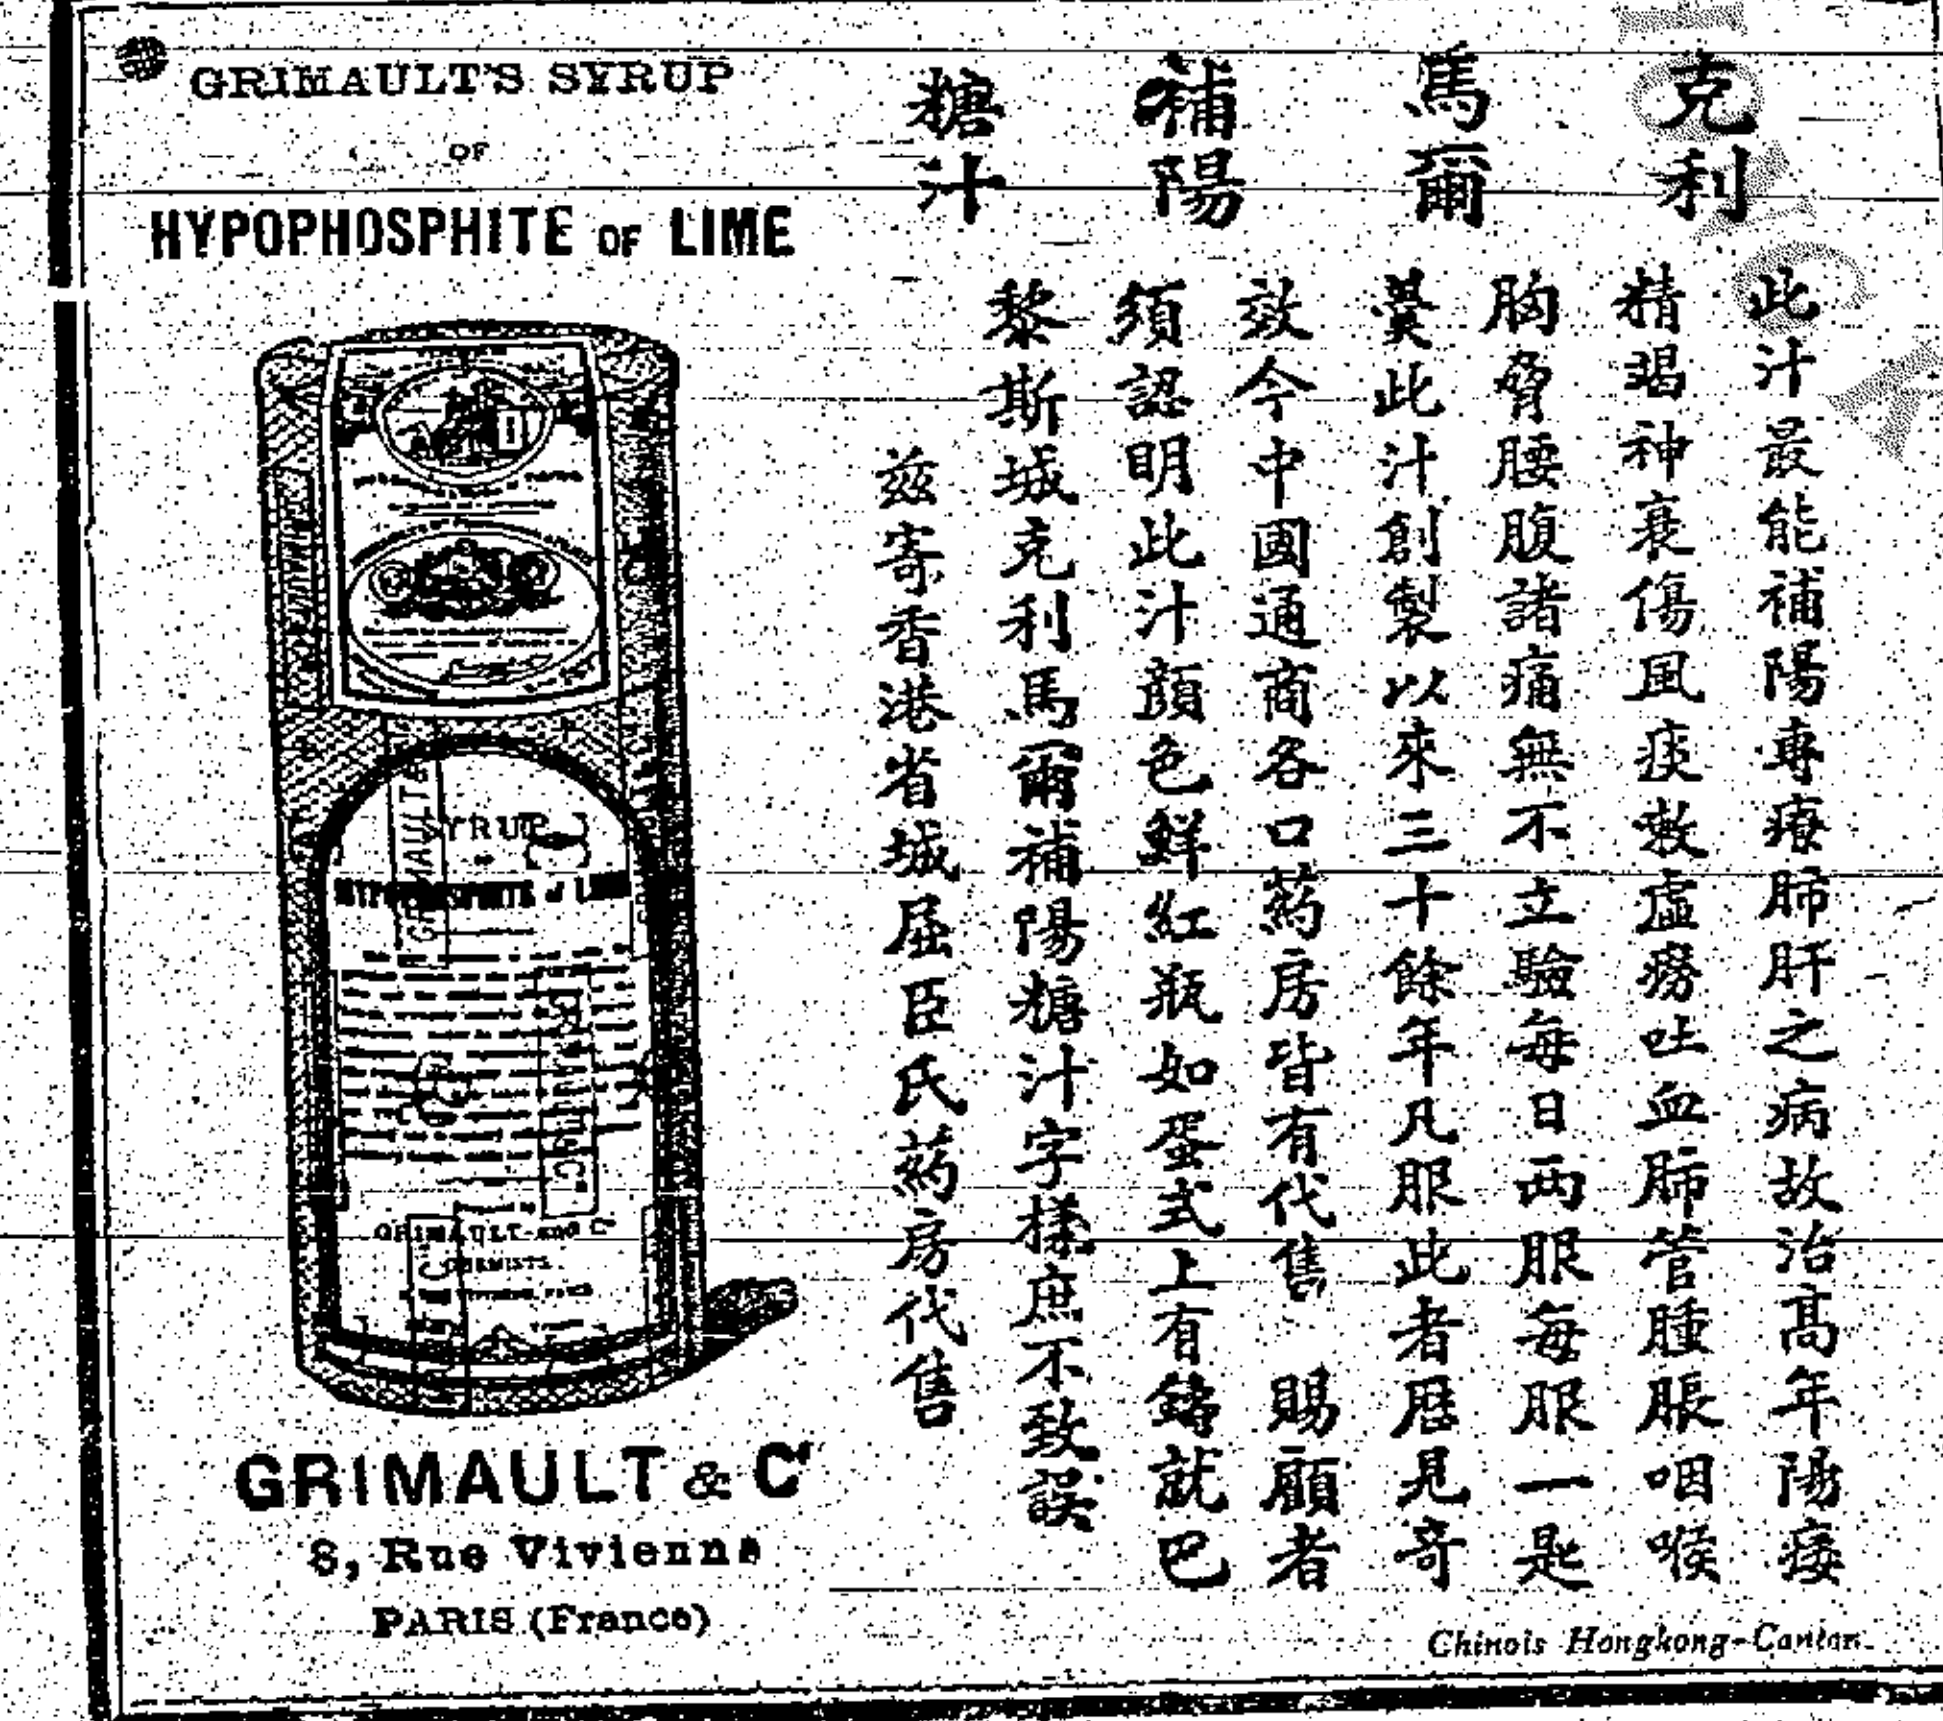 GRIMAULT'S SYRUP
OF
HYPOPHOSPHITE OF LIME
SYRUP
OF
HYPOPHOSPHITE of LIME
GRIMAULT and Cº
CHEMISTS
GRIMAULT & Cº
8, Rue Vivienne
PARIS (France)
克利
馬爾
補陽
糖汁
此汁最能補陽專療肺肝之病故治高年陽痿
精竭神衰傷風痰欬虛癆吐血肺管腫脹咽喉
胸脅腰腹諸痛無不立驗每日兩服每服一匙
羹此汁創製以來三十餘年凡服此者歷見奇
效今中國通商各口葯房皆有代售 賜顧者
須認明此汁顏色鮮紅瓶如蛋式上有鑄就巴
黎斯城克利馬爾補陽糖汁字樣庶不致誤
茲寄香港省城屈臣氏葯房代售
Chinois Hongkong-Canton